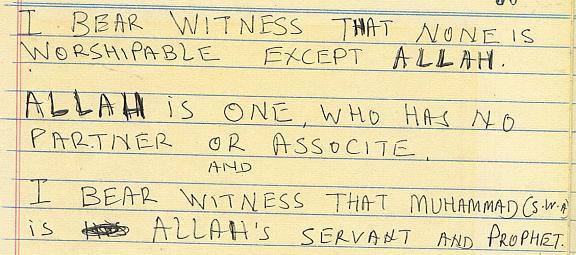 I BEAR WITNESS THAT NONE IS
WORSHIPABLE EXCEPT ALLAH.
ALLAH iS ONE, WHO HAS NO
PARTNER OR ASSOCITE,
AND
I BEAR WITNESS THAT MUHAMMAD (S.W.A)
is ALLAH'S SERVANT AND PROPHET.